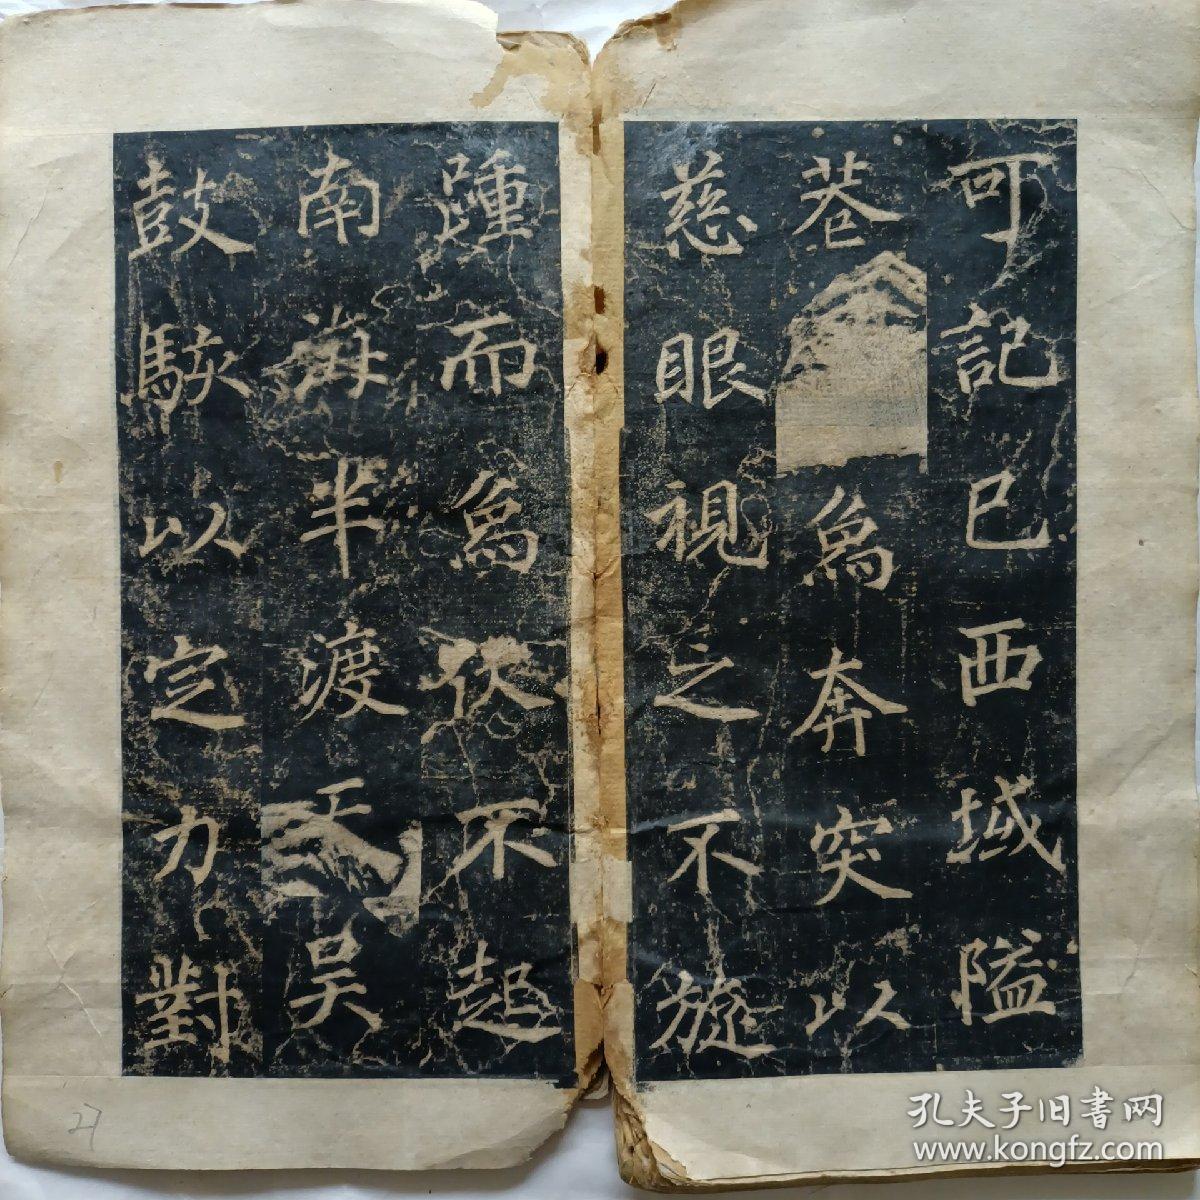 可記已西域隘
巷為奔突以
慈眼視之不旋
踵而為伏不起
南海半渡天吴
鼓駭以定力對
27
孔夫子旧書网
www.kongfz.com